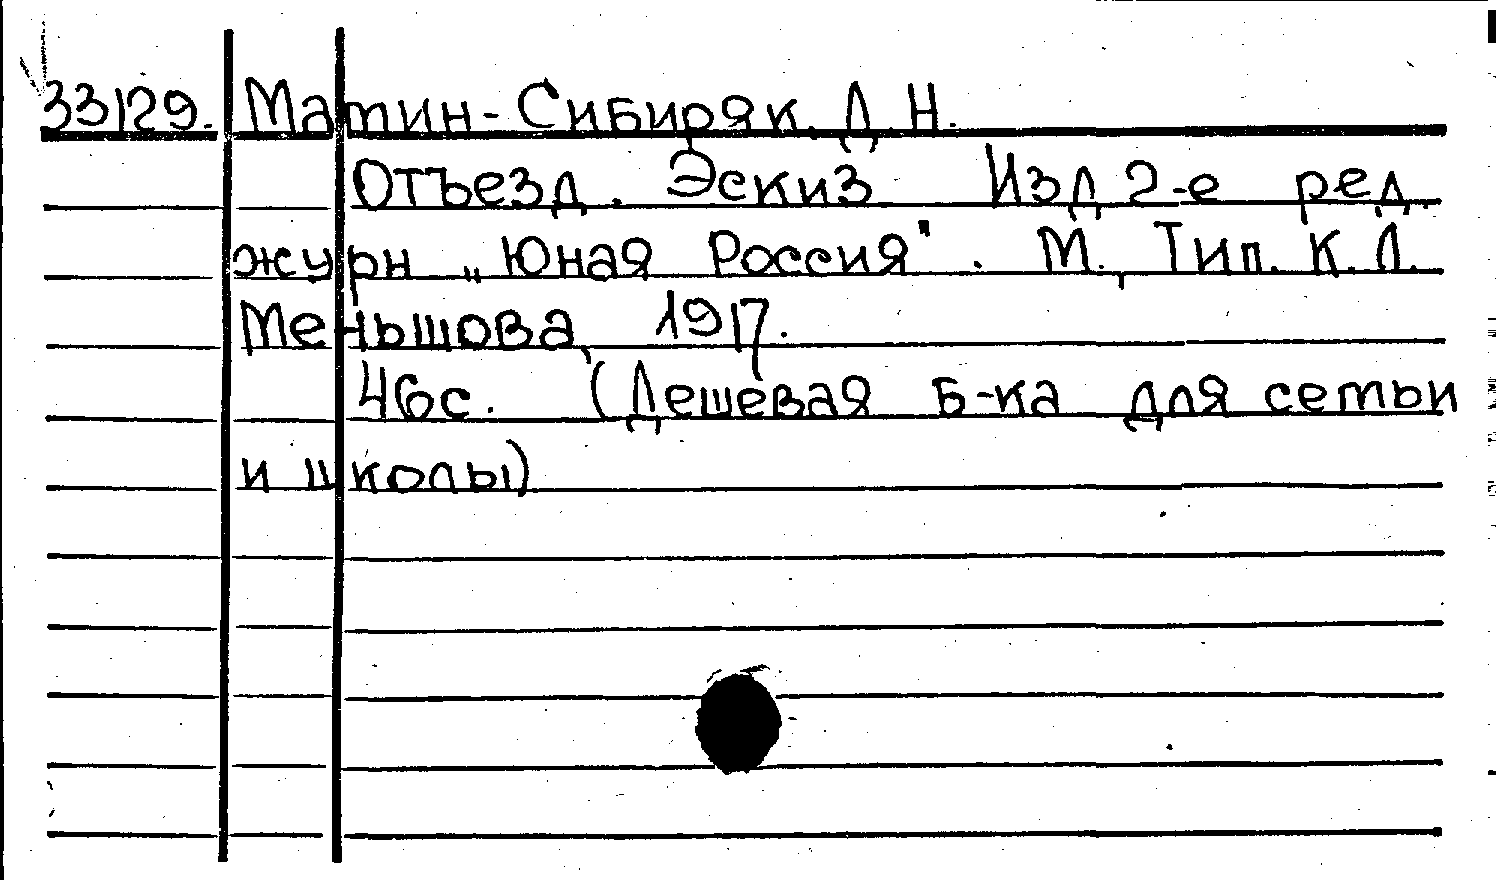 33129. Матин-Сибиряк, Д. Н.
Отъезд. Эскиз Изд 2-е ред.
журн „Юная Россия". М., Тип. К. Л.
Меньшова, 1917.
46с. (Дешевая Б-ка для семьи
и школы)